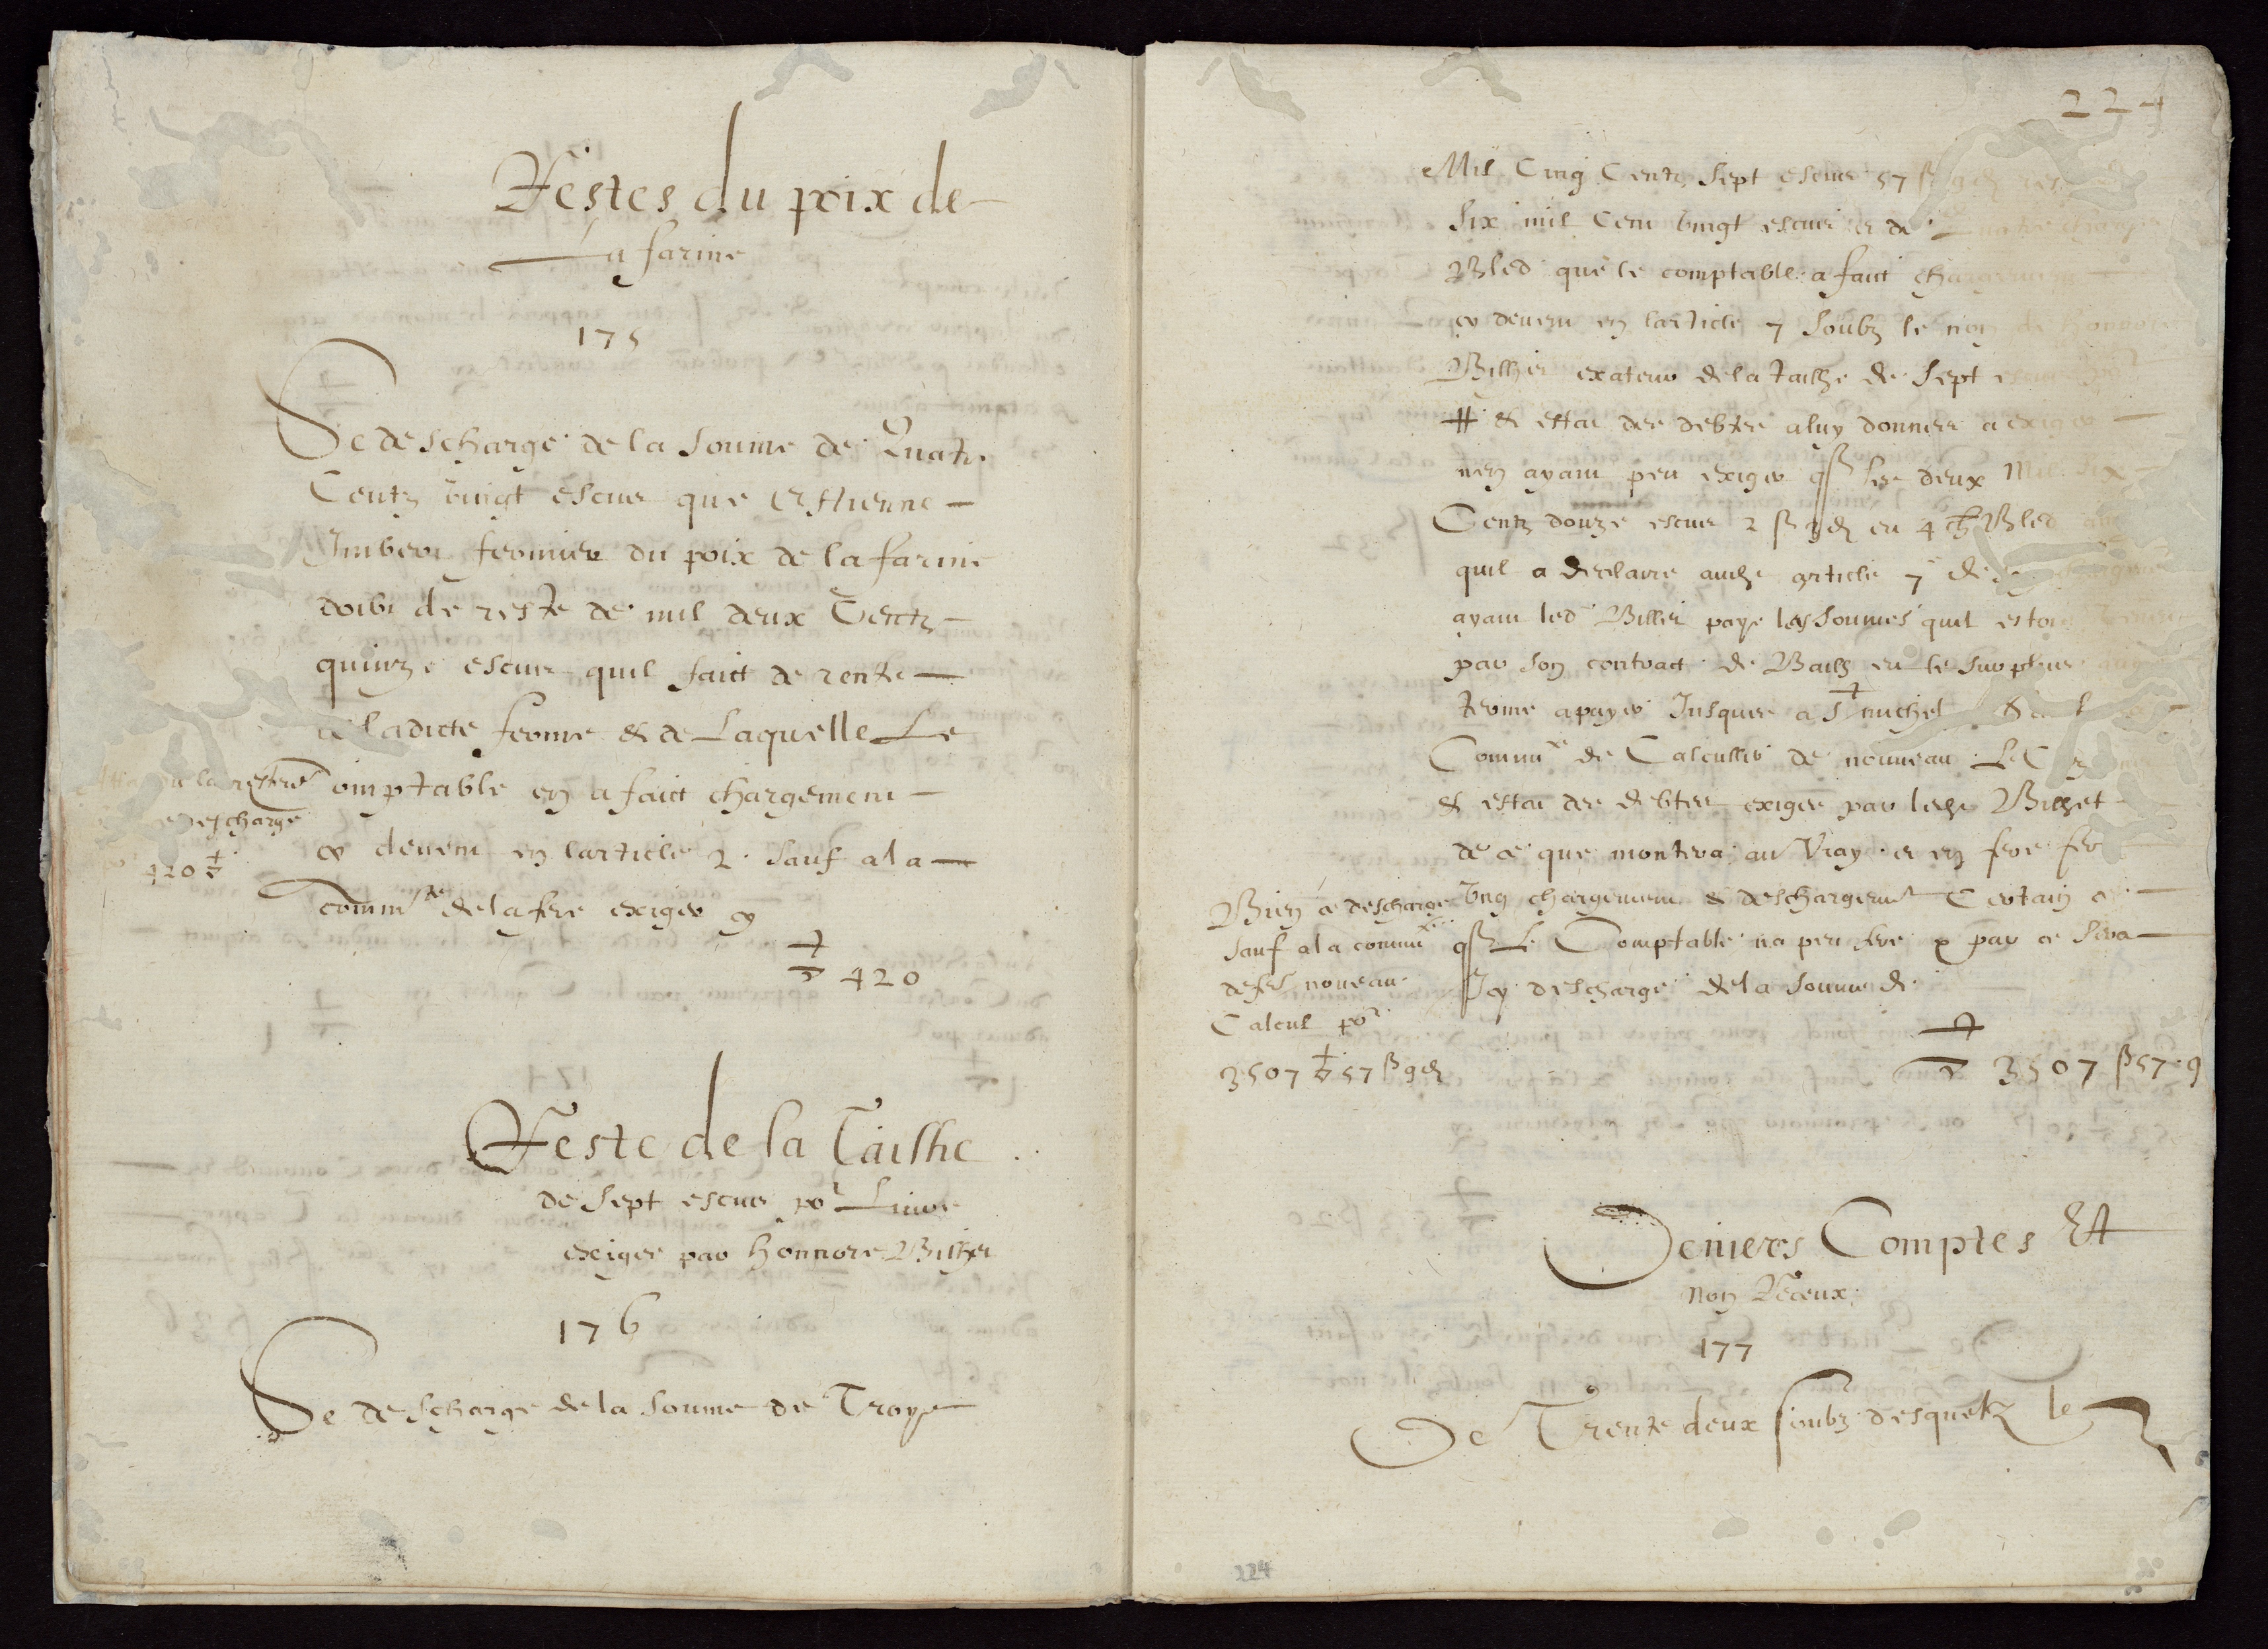 Restes du poix de
La farine
175
Se descharge de la somme de Quatre
Centz vingt escus que Estienne
Imbert fermier du poix de la farine
doibt de reste de mil deux Centz
quinze escus quil faict de rente
de ladicte ferme & de Laquelle Le
Comptable en a faict chargement
cy devent en larticle 2. Sauf a la
commte de la fere exiger cy
420
la reffere
descharge
420
Reste de la Tailhe
de Sept escus por Livre
exigee par Honnore Billier
176
Se descharge de la somme de Troys
224
Mil Cinq Centz Sept escus 57 ß 9 d
Six mil Cent vingt escus et de quatre charges
Bled que le comptable a faict chargement
cy devent en larticle 7 Soubz le nom de Honnore
Billier exateur de la tailhe de Sept escus
# & estat des debtes a luy donnees a exiger
nen ayant peu exiger q les deux Mil Six
Centz douze escus 2 ß 3 d et 4 ch Bled
quil a declaire audt article 7
ayant led Billier paye les sommes quil estoit
par son contract de Bailh et le surplus
terme a payer Jusques a St michel
Commte de Calculler de nouveau Le
& estat des debtes exiges par ledt Billiet
de ce que montera au Vray et en fere
Ung chargement & deschargemt Certain
q Le Comptable na peu fere & par ce Sera
Icy descharge de la somme de
3507 ß 57 . 9
Bien ce descharge
Sauf a la commte
de fe noveau
Calcul por
3507 57 ß 9 d
Deniers Comptes Et
Non Receux
177
De Trente deux soubz desquelz le
224